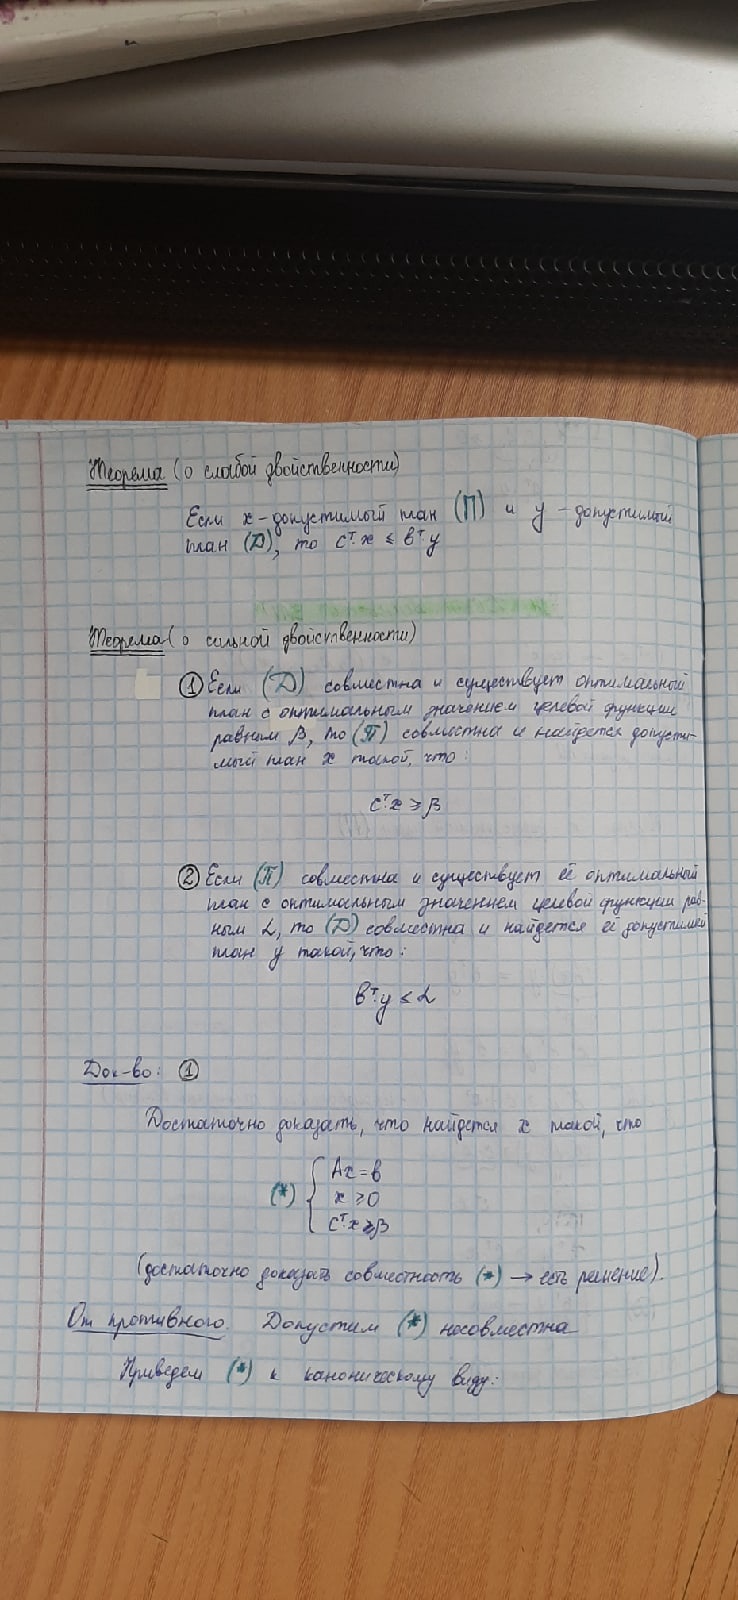 Теорема (о слабой двойственности)
Если x - допустимый план (П) и y - допустимый
план (Д), то cᵀx ≤ bᵀy
Теорема (о сильной двойственности)
① Если (Д) совместна и существует оптимальный
план с оптимальным значением целевой функции
равным β, то (П) совместна и найдется допусти-
мый план x такой, что:
cᵀx ≥ β
② Если (П) совместна и существует её оптимальный
план с оптимальным значением целевой функции рав-
ным α, то (Д) совместна и найдется её допустимый
план y такой, что:
bᵀy ≤ α
Док-во: ①
Достаточно доказать, что найдется x такой, что
(*) { Ax = b
x ≥ 0
cᵀx ≥ β
(достаточно доказать совместность (*) → есть решение).
От противного. Допустим (*) несовместна
Приведем (*) к каноническому виду: